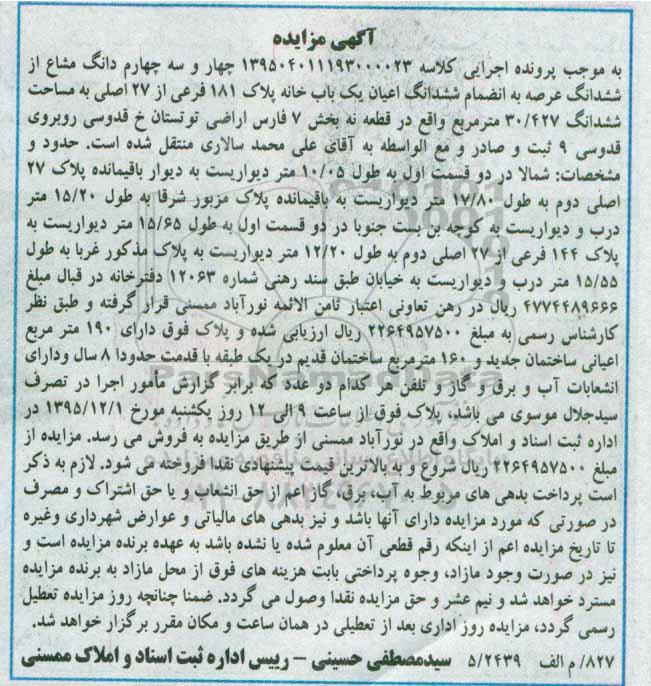 آگهی مزایده
به موجب پرونده اجرایی کلاسه ۱۳۹۵۰۴۰۱۱۱۹۳۰۰۰۰۲۳ چهار و سه چهارم دانگ مشاع از
ششدانگ عرصه به انضمام ششدانگ اعیان یک باب خانه پلاک ۱۸۱ فرعی از ۲۷ اصلی به مساحت
ششدانگ ۳۰/۴۲۷ مترمربع واقع در قطعه نه بخش ۷ فارس اراضی توتستان خ قدوسی روبروی
قدوسی ۹ ثبت و صادر و مع الواسطه به آقای علی محمد سالاری منتقل شده است. حدود و
مشخصات: شمالا در دو قسمت اول به طول ۱۰/۰۵ متر دیواریست به دیوار باقیمانده پلاک ۲۷
اصلی دوم به طول ۱۷/۸۰ متر دیواریست به باقیمانده پلاک مزبور شرقا به طول ۱۵/۲۰ متر
درب و دیواریست به کوچه بن بست جنوبا در دو قسمت اول به طول ۱۵/۶۵ متر دیواریست به
پلاک ۱۴۴ فرعی از ۲۷ اصلی دوم به طول ۱۲/۲۰ متر دیواریست به پلاک مذکور غربا به طول
۱۵/۵۵ متر درب و دیواریست به خیابان طبق سند رهنی شماره ۱۲۰۶۳ دفترخانه در قبال مبلغ
۴۷۷۴۴۸۹۶۶۶ ریال در رهن تعاونی اعتبار ثامن الائمه نورآباد ممسنی قرار گرفته و طبق نظر
کارشناس رسمی به مبلغ ۲۲۶۴۹۵۷۵۰۰ ریال ارزیابی شده و پلاک فوق دارای ۱۹۰ متر مربع
اعیانی ساختمان جدید و ۱۶۰ مترمربع ساختمان قدیم در یک طبقه با قدمت حدودا ۸ سال ودارای
انشعابات آب و برق و گاز و تلفن هر کدام دو عدد که برابر گزارش مامور اجرا در تصرف
سیدجلال موسوی می باشد، پلاک فوق از ساعت ۹ الی ۱۲ روز یکشنبه مورخ ۱۳۹۵/۱۲/۱ در
اداره ثبت اسناد و املاک واقع در نورآباد ممسنی از طریق مزایده به فروش می رسد. مزایده از
مبلغ ۲۲۶۴۹۵۷۵۰۰ ریال شروع و به بالاترین قیمت پیشنهادی نقدا فروخته می شود. لازم به ذکر
است پرداخت بدهی های مربوط به آب، برق، گاز اعم از حق انشعاب و یا حق اشتراک و مصرف
در صورتی که مورد مزایده دارای آنها باشد و نیز بدهی های مالیاتی و عوارض شهرداری وغیره
تا تاریخ مزایده اعم از اینکه رقم قطعی آن معلوم شده یا نشده باشد به عهده برنده مزایده است و
نیز در صورت وجود مازاد، وجوه پرداختی بابت هزینه های فوق از محل مازاد به برنده مزایده
مسترد خواهد شد و نیم عشر و حق مزایده نقدا وصول می گردد. ضمنا چنانچه روز مزایده تعطیل
رسمی گردد، مزایده روز اداری بعد از تعطیلی در همان ساعت و مکان مقرر برگزار خواهد شد.
۸۲۷/ م الف ۵/۲۴۳۹ سیدمصطفی حسینی – رییس اداره ثبت اسناد و املاک ممسنی
ParsNamadData